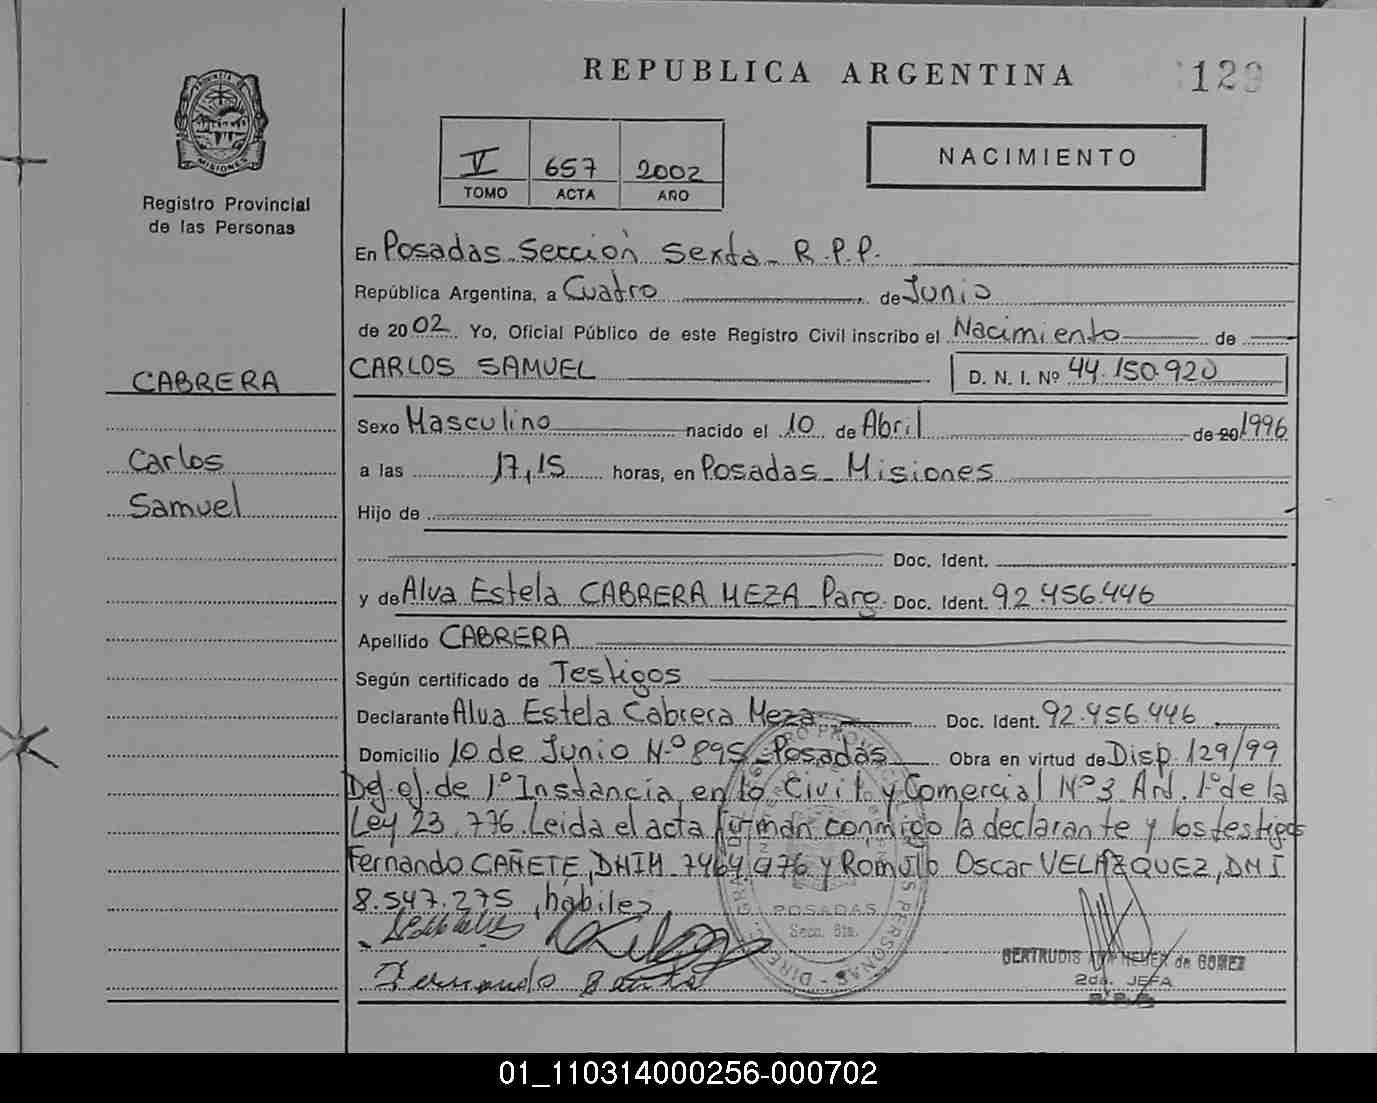 REPUBLICA ARGENTINA
129
MISIONES
Registro Provincial
de las Personas
V 657 2002
TOMO ACTA AÑO
NACIMIENTO
En Posadas. Sección Sexta. R.P.P.
República Argentina, a Cuatro de Junio
de 2002 Yo, Oficial Público de este Registro Civil inscribo el Nacimiento de
CARLOS SAMUEL D. N. I. Nº 44.150.920
CABRERA
Carlos
Samuel
Sexo Masculino nacido el 10 de Abril de 20 1996
a las 17,15 horas, en Posadas. Misiones
Hijo de
Doc. Ident.
y de Alva Estela CABRERA MEZA Parg. Doc. Ident. 92.456.446
Apellido CABRERA
Según certificado de Testigos
Declarante Alva Estela Cabrera Meza Doc. Ident. 92.456.446
Domicilio 10 de Junio N.º 895 Posadas Obra en virtud de Disp. 129/99
de 1º Instancia en lo Civil y Comercial Nº 3 Art. 1º de la
Ley 23.776. Leida el acta firman conmigo la declarante y los testigos
Fernando CAÑETE, DNIM 7464.976 y Romulo Oscar VELAZQUEZ, DNI
8.547.275, habiles
POSADAS
Secc. 6ta.
GERTRUDIS de GOMEZ
2da. JEFA
01_110314000256-000702